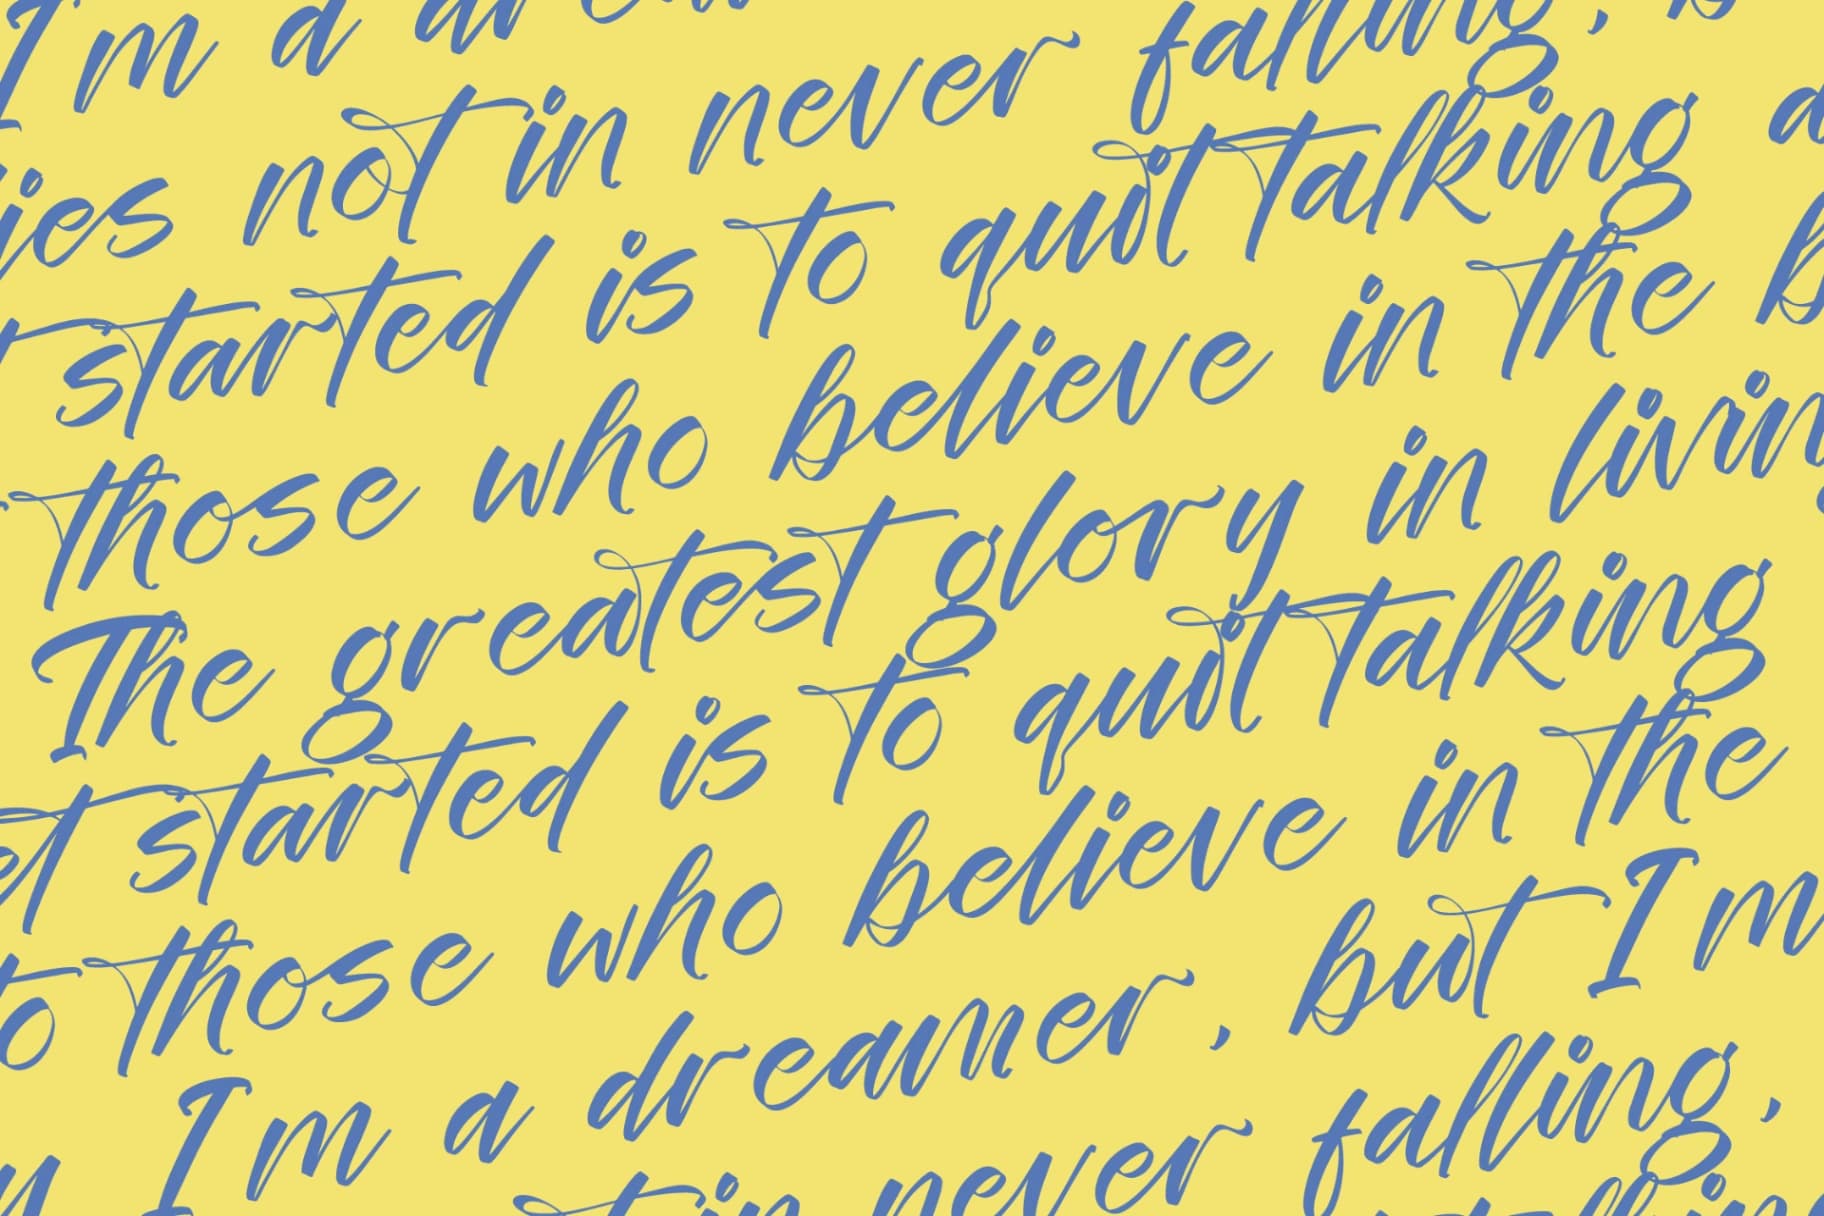 I m a drea
ies not in never falling, b
t started is to quit talking a
those who believe in the b
The greatest glory in livin
et started is to quit talking
to those who believe in the
I m a dreamer, but I m
in never falling,